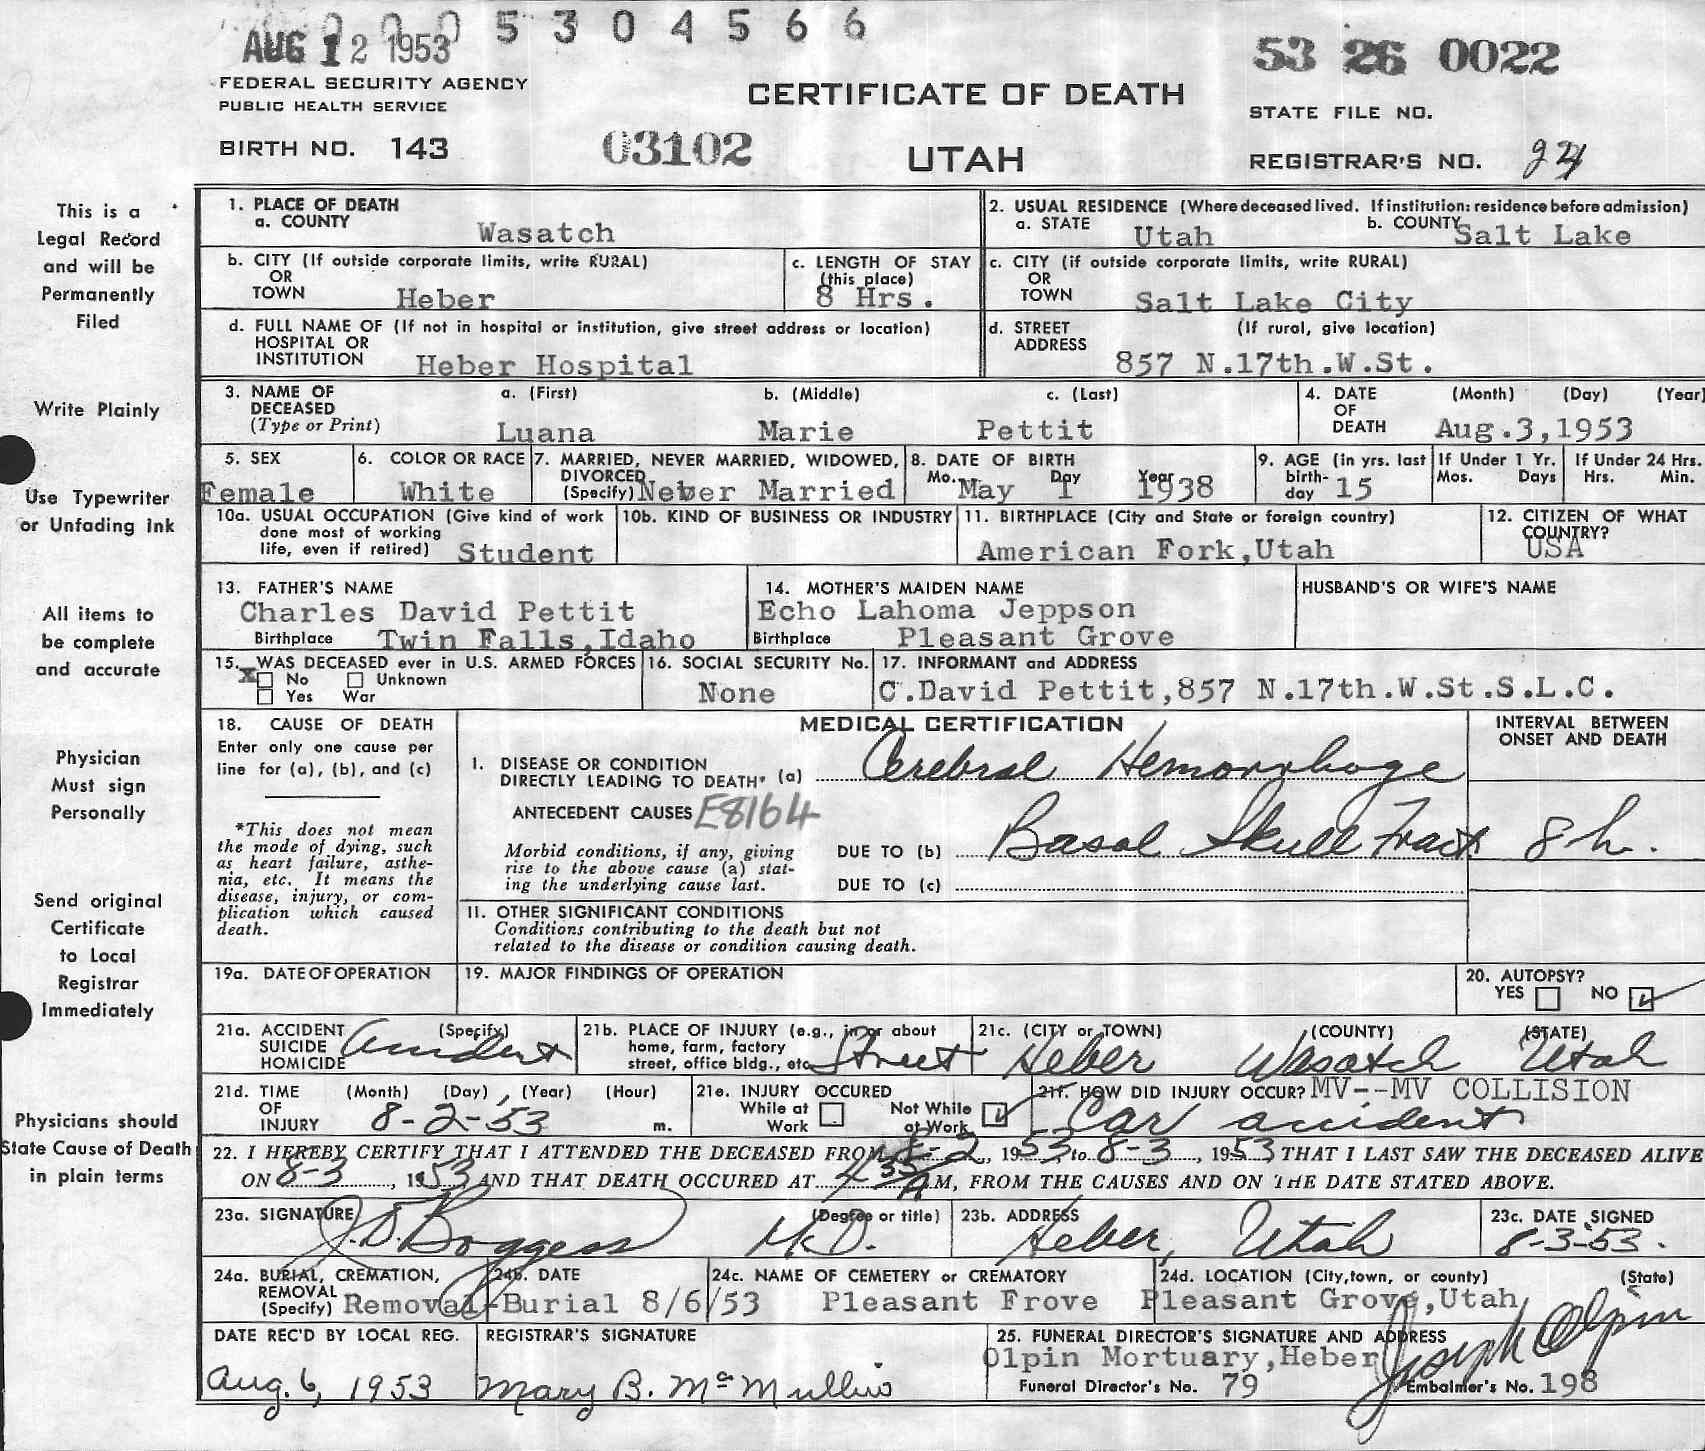 0 0 0 5 3 0 4 5 6 6
AUG 12 1953
53 26 0022
FEDERAL SECURITY AGENCY
PUBLIC HEALTH SERVICE
CERTIFICATE OF DEATH
STATE FILE NO.
BIRTH NO. 143
03102
UTAH
REGISTRAR'S NO.
This is a
Legal Record
and will be
Permanently
Filed
1. PLACE OF DEATH
a. COUNTY Wasatch
2. USUAL RESIDENCE (Where deceased lived. If institution: residence before admission)
a. STATE Utah b. COUNTY Salt Lake
b. CITY (If outside corporate limits, write RURAL)
OR
TOWN Heber
c. LENGTH OF STAY
(this place)
8 Hrs.
c. CITY (if outside corporate limits, write RURAL)
OR
TOWN Salt Lake City
d. FULL NAME OF (If not in hospital or institution, give street address or location)
HOSPITAL OR
INSTITUTION Heber Hospital
d. STREET (If rural, give location)
ADDRESS
857 N.17th.W.St.
Write Plainly
3. NAME OF a. (First) b. (Middle) c. (Last)
DECEASED
(Type or Print) Luana Marie Pettit
4. DATE (Month) (Day) (Year)
OF
DEATH Aug.3,1953
Use Typewriter
or Unfading Ink
5. SEX
Female
6. COLOR OR RACE
White
7. MARRIED, NEVER MARRIED, WIDOWED,
DIVORCED
(Specify) Never Married
8. DATE OF BIRTH
Mo. Day Year
May 1 1938
9. AGE (in yrs. last
birth-
day 15
If Under 1 Yr.
Mos. Days
If Under 24 Hrs.
Hrs. Min.
10a. USUAL OCCUPATION (Give kind of work
done most of working
life, even if retired) Student
10b. KIND OF BUSINESS OR INDUSTRY
11. BIRTHPLACE (City and State or foreign country)
American Fork,Utah
12. CITIZEN OF WHAT
COUNTRY?
USA
All items to
be complete
and accurate
13. FATHER'S NAME
Charles David Pettit
Birthplace Twin Falls,Idaho
14. MOTHER'S MAIDEN NAME
Echo Lahoma Jeppson
Birthplace Pleasant Grove
HUSBAND'S OR WIFE'S NAME
15. WAS DECEASED ever in U.S. ARMED FORCES
X No Unknown
Yes War
16. SOCIAL SECURITY No.
None
17. INFORMANT and ADDRESS
C.David Pettit,857 N.17th.W.St.S.L.C.
Physician
Must sign
Personally
18. CAUSE OF DEATH
Enter only one cause per
line for (a), (b), and (c)
*This does not mean
the mode of dying, such
as heart failure, asthe-
nia, etc. It means the
disease, injury, or com-
plication which caused
death.
MEDICAL CERTIFICATION
INTERVAL BETWEEN
ONSET AND DEATH
I. DISEASE OR CONDITION
DIRECTLY LEADING TO DEATH* (a) Cerebral Hemorrhage
ANTECEDENT CAUSES E8164
Morbid conditions, if any, giving
rise to the above cause (a) stat-
ing the underlying cause last.
DUE TO (b) Basal Skull Fract 8 h.
DUE TO (c)
II. OTHER SIGNIFICANT CONDITIONS
Conditions contributing to the death but not
related to the disease or condition causing death.
Send original
Certificate
to Local
Registrar
Immediately
19a. DATE OF OPERATION
19. MAJOR FINDINGS OF OPERATION
20. AUTOPSY?
YES NO ✓
21a. ACCIDENT (Specify)
SUICIDE
HOMICIDE Accident
21b. PLACE OF INJURY (e.g., in or about
home, farm, factory
street, office bldg., etc Street
21c. (CITY or TOWN) (COUNTY) (STATE)
Heber Wasatch Utah
Physicians should
State Cause of Death
in plain terms
21d. TIME (Month) (Day) (Year) (Hour)
OF
INJURY 8-2-53 m.
21e. INJURY OCCURED
While at Work
Not While at Work ✓
21f. HOW DID INJURY OCCUR? MV--MV COLLISION
Car accident
22. I HEREBY CERTIFY THAT I ATTENDED THE DECEASED FROM 8-2, 1953, to 8-3, 1953 THAT I LAST SAW THE DECEASED ALIVE
ON 8-3, 1953 AND THAT DEATH OCCURED AT 4 35 AM, FROM THE CAUSES AND ON THE DATE STATED ABOVE.
23a. SIGNATURE (Degree or title)
J.D. Boggess M.D.
23b. ADDRESS
Heber, Utah
23c. DATE SIGNED
8-3-53.
24a. BURIAL, CREMATION,
REMOVAL
(Specify) Removal-Burial
24b. DATE
8/6/53
24c. NAME OF CEMETERY or CREMATORY
Pleasant Frove
24d. LOCATION (City, town, or county) (State)
Pleasant Grove,Utah
DATE REC'D BY LOCAL REG.
Aug. 6, 1953
REGISTRAR'S SIGNATURE
Mary B. McMullin
25. FUNERAL DIRECTOR'S SIGNATURE AND ADDRESS
Olpin Mortuary,Heber Joseph Olpin
Funeral Director's No. 79 Embalmer's No. 198